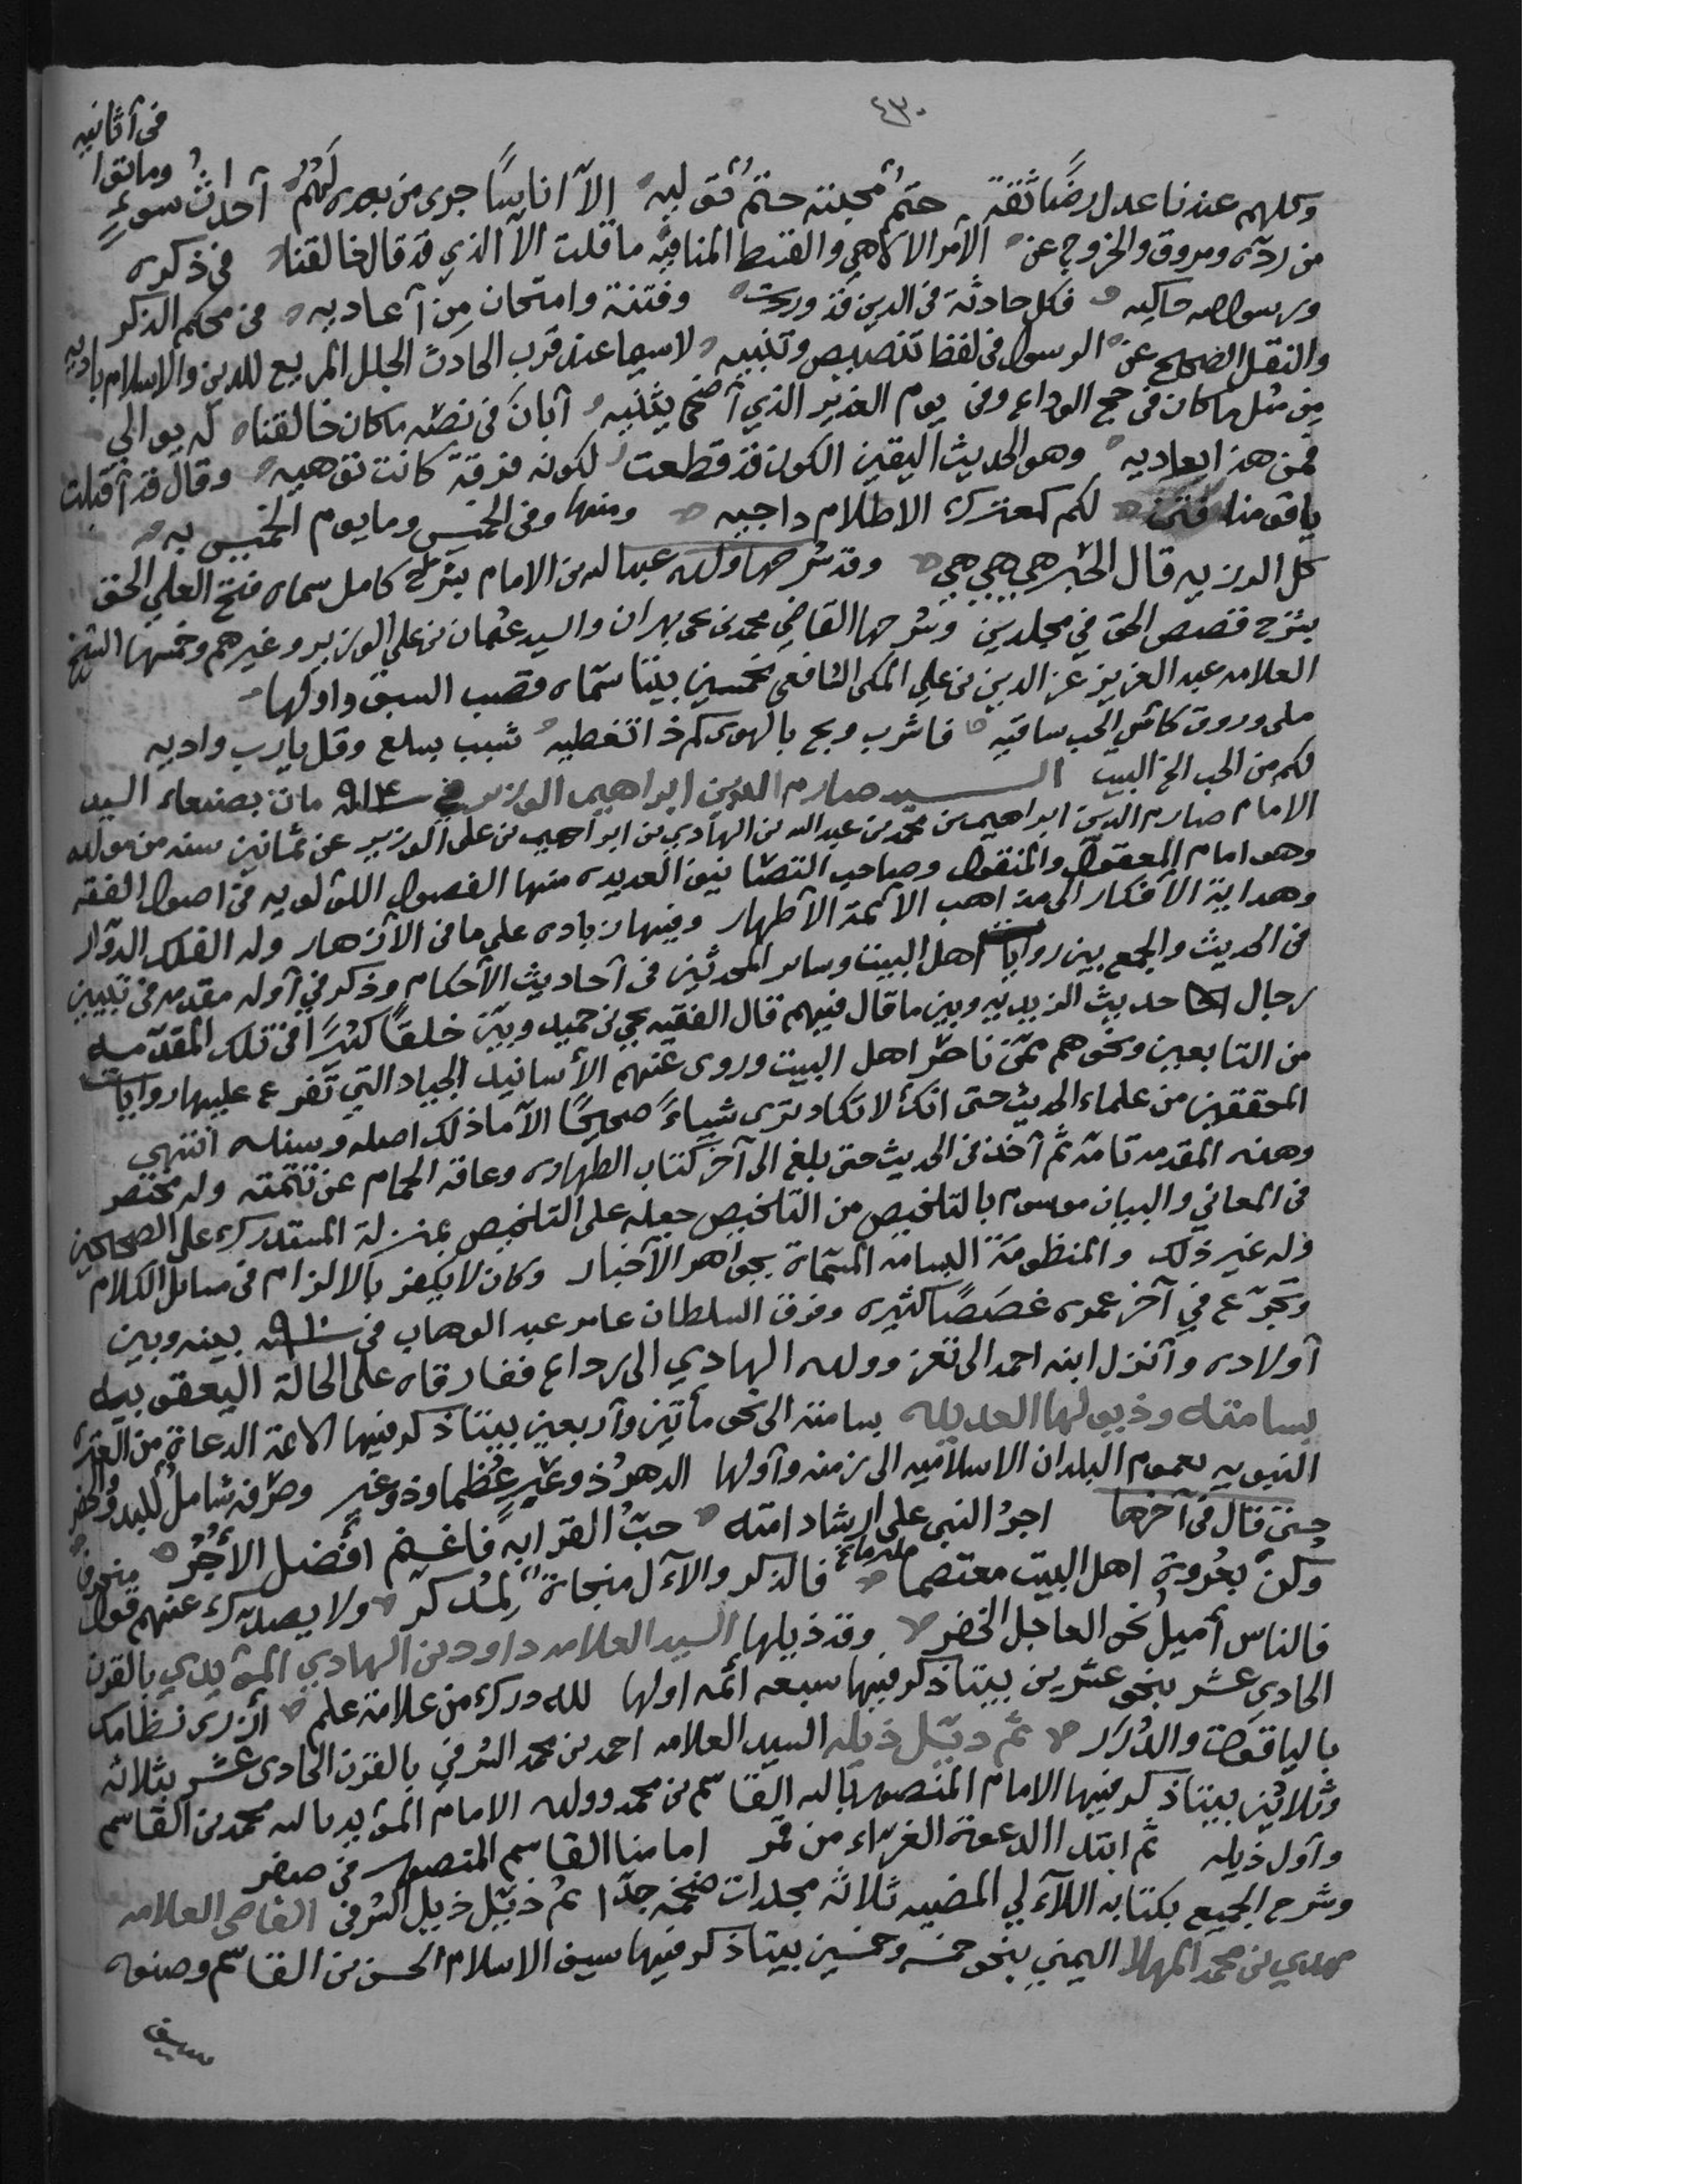 ٤٣٠
في آثانيه
وكلهم عندنا عدل رضًا ثقة حتمٌ محبته حتمٌ تَوَليه الاّ اناسًا جرى من بعده لَهُمُ آحداثُ سوءٍ وماتوا
من ردّه ومروق والخروج عن الأمر الالاهي والقسط المنافيه ما قلت الاّ الذي قد قال خالقنا في ذكره
ورسول الله حاكيه فكل حادثة في الدين قد وردت وفتنة وامتحان مِن آعاديه في محكم الذكر
والنقل الصحيح عن الرسول في لفظ تنصيص وتنبيه لاسيما عند قرب الحادث الجلل المريع للدين والاسلام باديه
مِن مثل ما كان في حج الوداع وفي يوم الغدير الذي آضحى يثنيه آبانَ في نصّه ما كان خالقناه له يوالي
فمن هذا يعاديه وهو الحديث اليقين الكون قد قطعت لكونه فرقة كانت توهيه وقال قد آقبلت
يا قومنا فتن لكم كمعترك الاظلام داجيه ومنها وفي الخميس وما يوم الخميس به
كل الرزيه قال الحَبر هي هي وقد شرحها ولده عبدالله بن الامام بشرح كامل سماه فتح العلي الحق
بشرح قصص الحق في مجلدين وشرحها القاضي محمد بن يحيى بهران والسيد عثمان بن علي الوزير وغيرهم وخمّسها الشيخ
العلامه عبد العزيز عز الدين بن علي المكي الشافعي بخمسين بيتا سمّاه قصب السبق واولها
ملى وروق كاس الحب ساقيه فاشرب وبح بالهوى كم ذا تغطيه شبب بسلع وقل يارب واديه
لكم من الحب الخ البيت الســيد صارم الدين ابراهيم الوزير في سنة ٩١٤ مات بصنعاء السيد
الامام صارم الدين ابراهيم بن محمد بن عبدالله بن الهادي بن ابراهيم بن علي الوزير عن ثمانين سنه من مولده
وهو امام المعقول والمنقول وصاحب التصانيف العديده منها الفصول اللؤلؤيه في اصول الفقه
وهداية الأفكار الى مذاهب الأئمة الأطهار وفيها زياده على ما في الأزهار وله الفلك الدوّار
في الحديث والجمع بين روايات اهل البيت وساير المحدثين في آحاديث الأحكام وذكر في آوله مقدمه في تبيين
رجال حديث الزيديه وبين ما قال فيهم قال الفقيه يحيى بن حميد وبيّن خلقًا كثيرًا في تلك المقدّمه
من التابعين ونحوهم ممّن ناظر اهل البيت وروى عنهم الأسانيد الجياد التي تفرع عليها روايات
المحققين من علماء الحديث حتى انك لا تكاد ترى شيئاً صحيحًا الاّ ماذلك اصله وسناده انتهى
وهذه المقدمه تامة ثم آخذ في الحديث حتى بلغ الى آخر كتاب الطهاره وعاقه الحمام عن تتمته وله مختصر
في المعاني والبيان موسوم بالتلخيص من التلخيص جعله على التلخيص بمنزلة المستدرك على الصحيحين
وله غير ذلك والمنظومة البسامه المسماة بجواهر الأخبار وكان لا يكفر بالالزام في مسائل الكلام
وتجرّع في آخر عمره غصصًا كثيره وفرق السلطان عامر عبد الوهاب في سنة ٩١٠ بينه وبين
آولاده وآنزل ابنه احمد الى تعز وولده الهادي الى رداع ففارقاه على الحالة اليعقوبيه
بسامته وذيولها العديله بسامته الى نحو مأتين وآربعين بيتا ذكر فيها الائمة الدعاة من العتره
النبويه بعموم البلدان الاسلاميه الى زمنه وآولها الدهر ذو عِبَرٍ عُظما وذو غير وصرفه شاملٌ للبدو والحضر
حتى قال في آخرها اجرُ النبي على ارشاد امته حبّ القرابه فاغنم افضل الأجُر
وكن بعُروة اهل البيت معتصما فالذكر والآل منجاة لمُدكر ولا يصدّك عنهم قول منحرف
فالناس آميلُ نحو العاجل الخضر وقد ذيلها السيد العلامه داود بن الهادي المؤيدي بالقرن
الحادي عشر بنحو عشرين بيتا ذكر فيها سبعه ائمه اولها لله درك من علامة علم ازرى نظامك
بالياقوت والدُرر ثم ذيّل ذيله السيد العلامه احمد بن محمد الشرفي بالقرن الحادي عشر بثلاثه
وثلاثين بيتا ذكر فيها الامام المنصور بالله القاسم بن محمد وولده الامام المؤيد بالله محمد بن القاسم
وآول ذيله ثم ابتدا الدعوة الغراء من قمر امامنا القاسم المنصور في صفر
وشرح الجميع بكتابه اللآلي المضيه ثلاثه مجلدات ضخمه جدّا ثم ذيّل ذيل الشرفي القاضي العلامه
مهدي بن محمد المهلا اليمني بنحو خمسه وخمسين بيتا ذكر فيها سيف الاسلام الحسن بن القاسم وصنوه
سيف